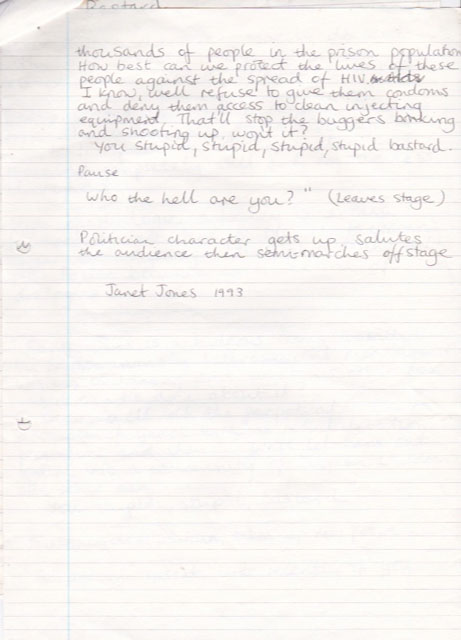 Bastard
thousands of people in the prison population
How best can we protect the lives of these
people against the spread of HIV
I know, well refuse to give them condoms
and deny them access to clean injecting
equipment. That'll stop the buggers bonking
and shooting up, wont it?
You stupid, stupid, stupid, stupid bastard.
Pause
Who the hell are you?" (Leaves stage)
Politician character gets up, salutes
the audience then semi-marches offstage
Janet Jones 1993